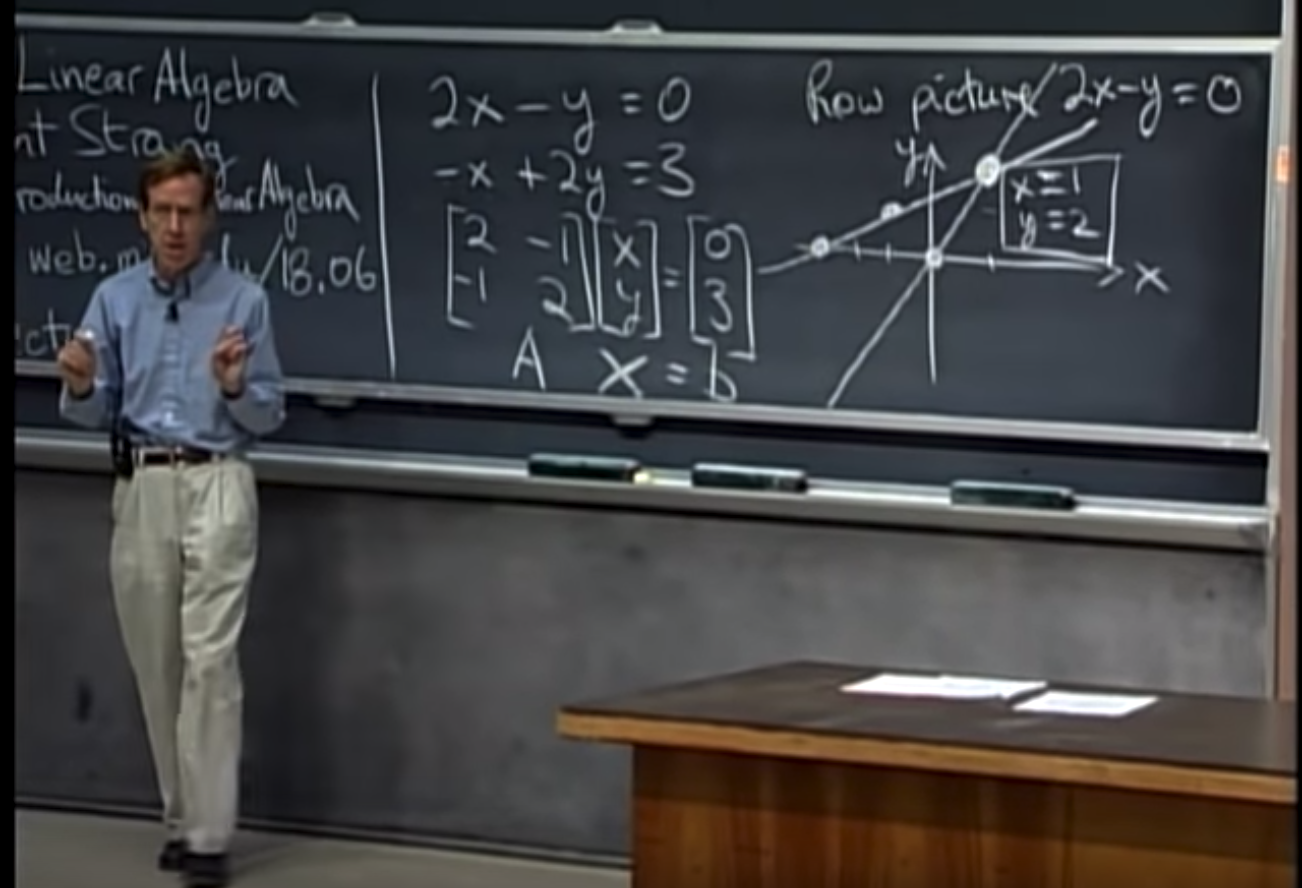 Linear Algebra
nt Strang
roduction Algebra
web.m /18.06
2x - y = 0
-x + 2y = 3
[2 -1] [x] = [0]
[-1 2] [y] = [3]
A X = b
Row picture 2x-y=0
y
x=1
y=2
x